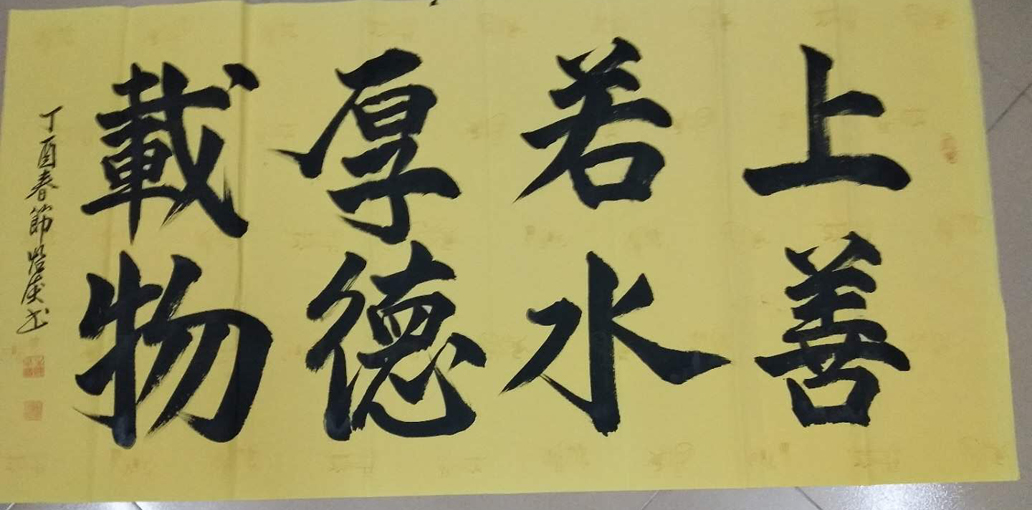 上善
若水
厚德
載物
丁酉春節
书